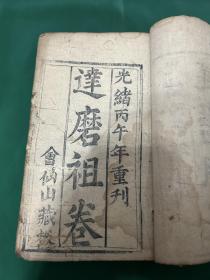 光緒丙午年重刊
達磨祖卷
會仙山藏板